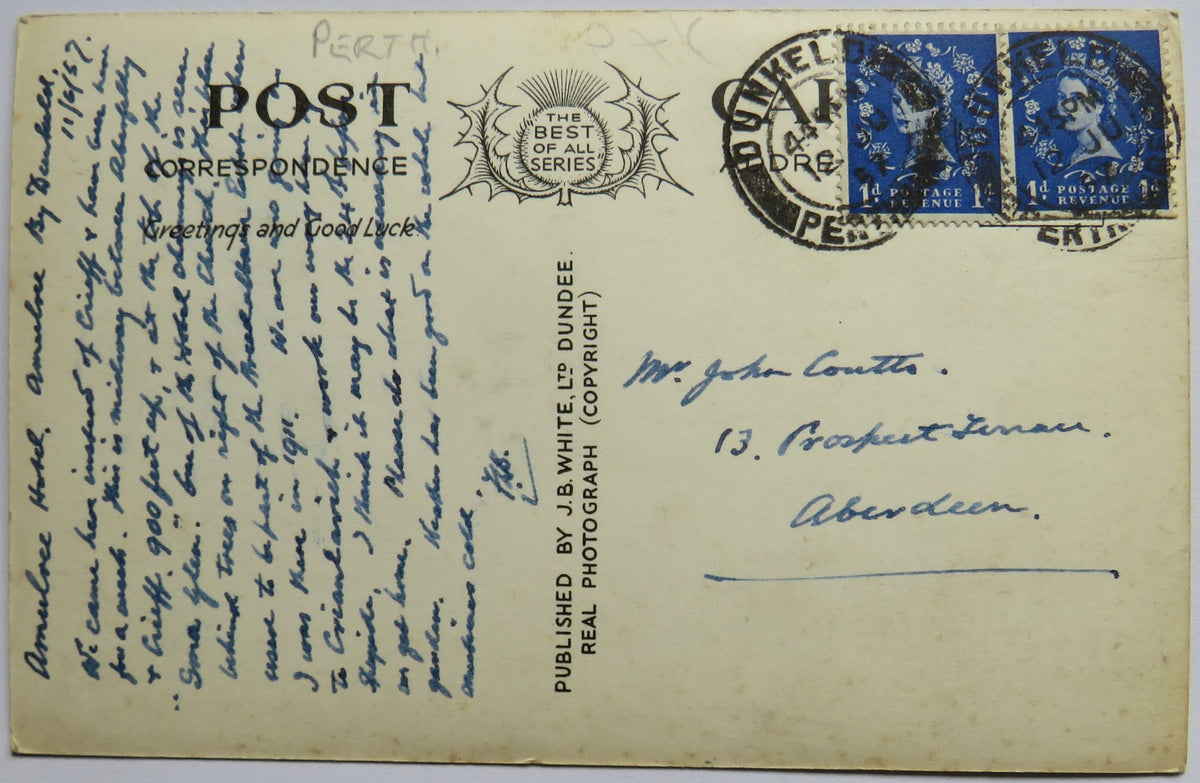 PERTH.
POST CARD
THE
BEST
OF ALL
SERIES
CORRESPONDENCE
ADDRE
Greetings and Good Luck
Amulree Hotel. Amulree By Dunkeld.
11/6/57.
We came here instead of Crieff & have been here
for a week. This is midway between Aberfeldy
& Crieff. 900 feet up, & at the top of the
"Sma Glen". One of the Hotel chimneys is seen
behind trees on right of the Church. This place
used to be part of the Breadalbane Estate when
I was there in 1911. We are now going
to Crianlarich & work our way home
Speyside. I think it may be the 24th before
we get home. Please do what is necessary in
garden. Weather has been good on the whole but
sometimes cold.
PUBLISHED BY J. B. WHITE, LTD DUNDEE.
REAL PHOTOGRAPH (COPYRIGHT)
DUNKELD
PERTH
1d POSTAGE 1d
REVENUE
DUNKELD
445PM
12 JU
PERTHSHIRE
1d POSTAGE 1d
REVENUE
Mr. John Coutts.
13. Prospect Terrace.
Aberdeen.